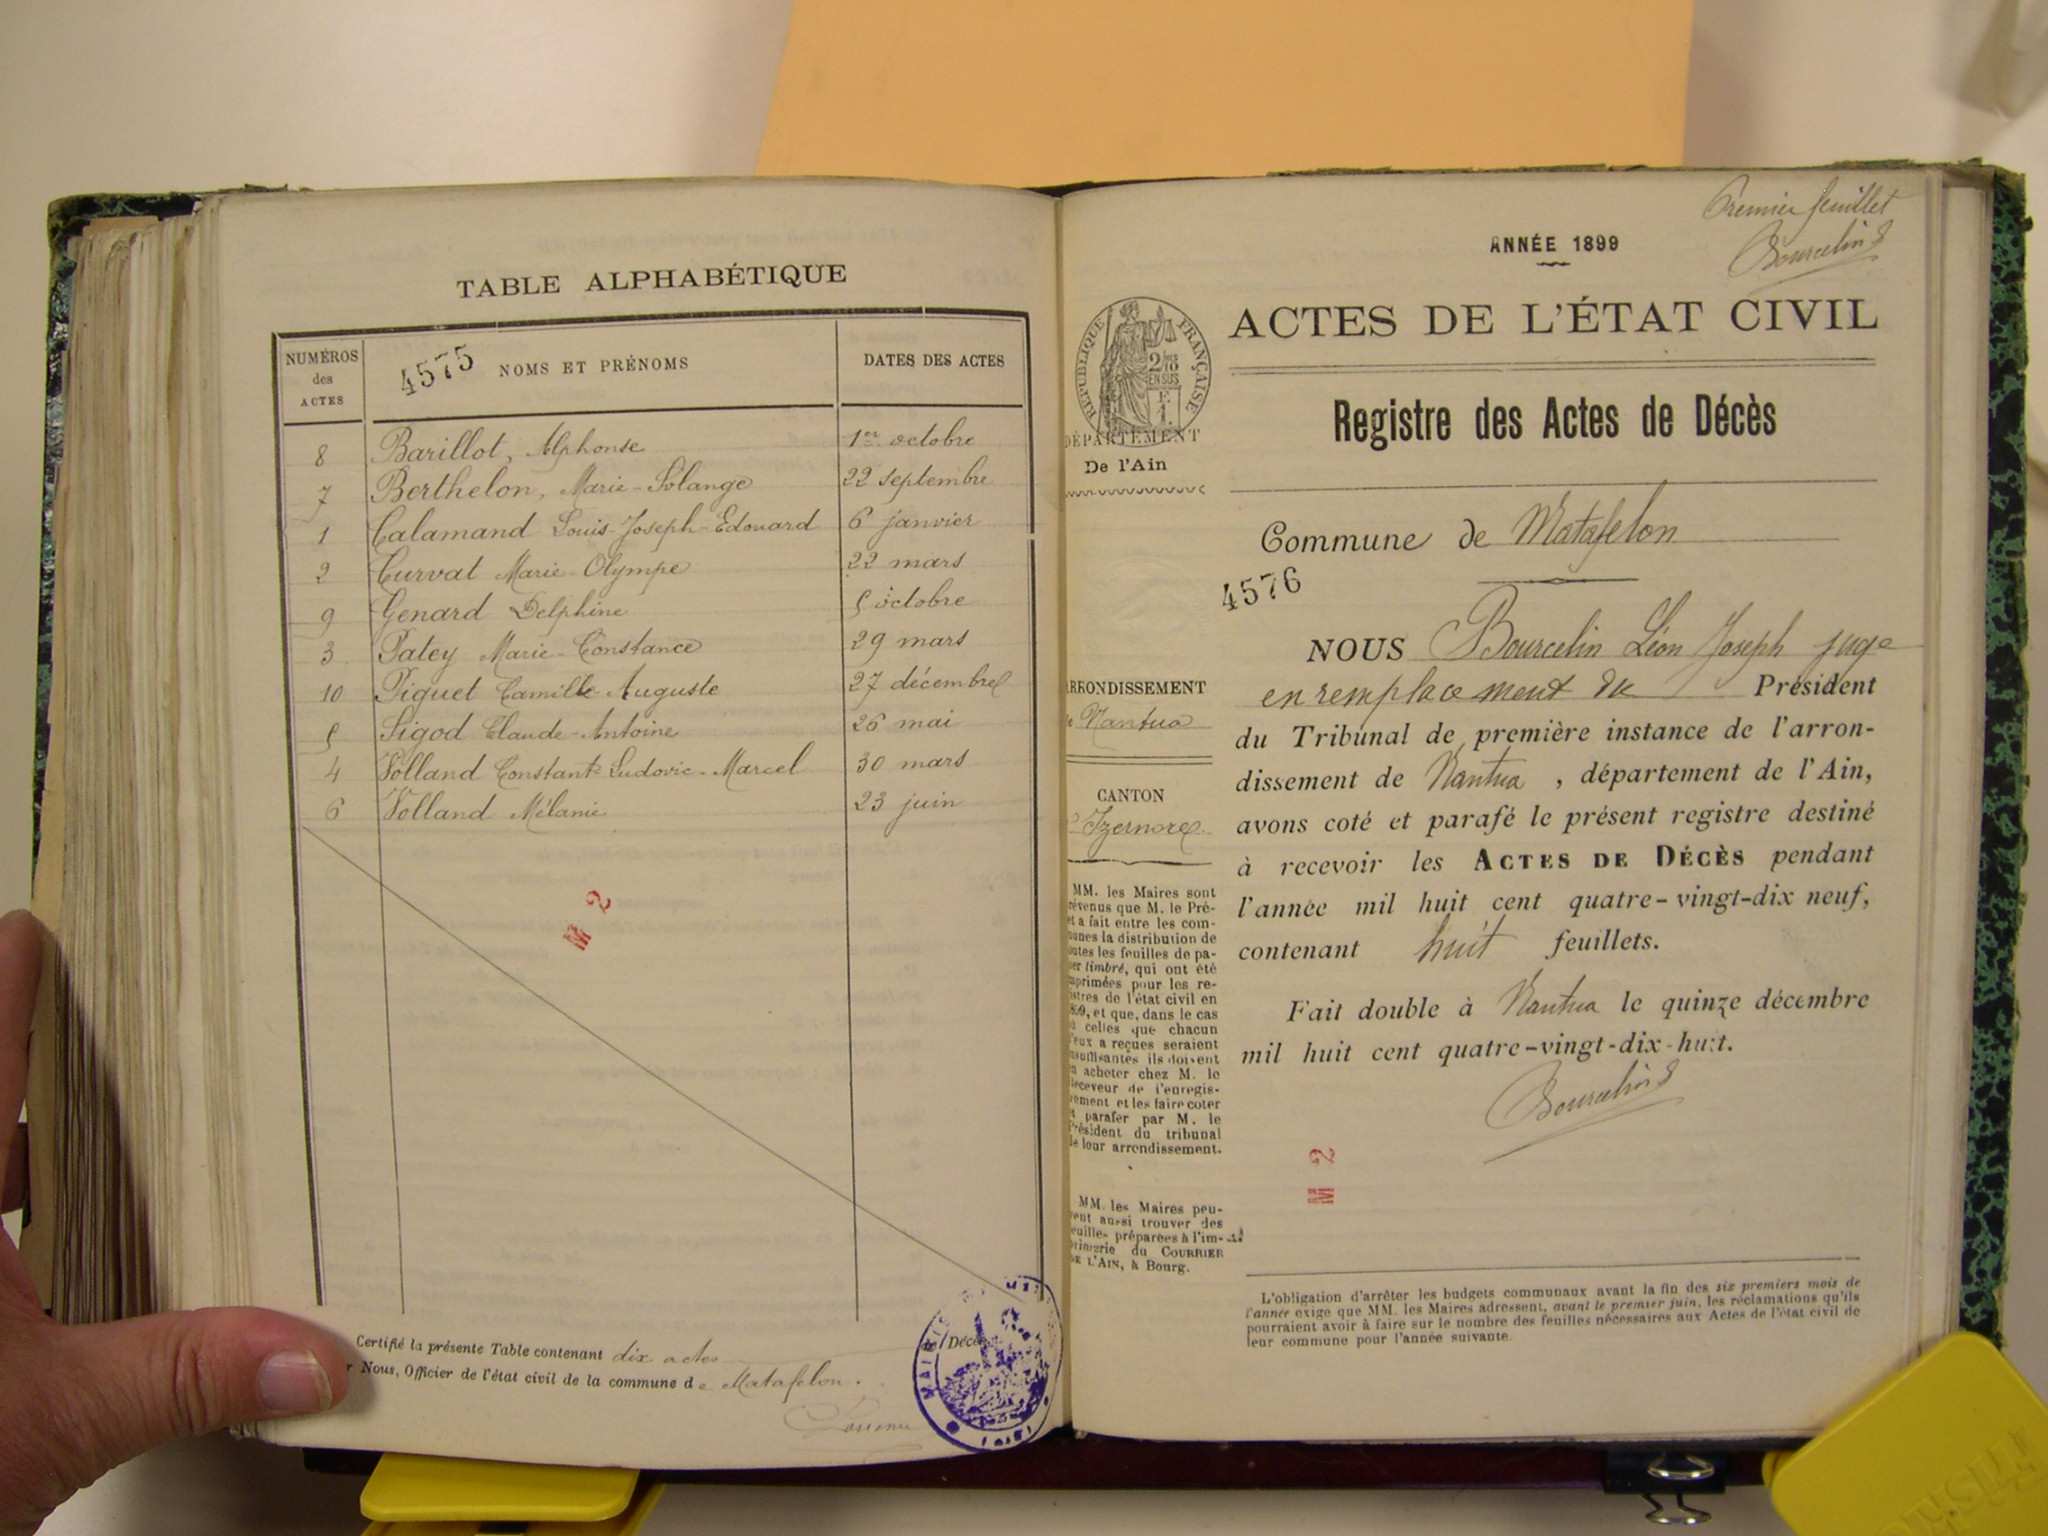 TABLE ALPHABÉTIQUE
NUMÉROS des ACTES
4575 NOMS ET PRÉNOMS
DATES DES ACTES
8 Barillot, Alphonse 1er octobre
7 Berthelon, Marie-Solange 22 septembre
1 Calamand Louis-Joseph-Edouard 6 janvier
2 Curvat Marie-Olympe 22 mars
9 Genard Delphine 5 octobre
3 Patey Marie-Constance 29 mars
10 Piguet Camille-Auguste 27 décembre
5 Sigod Claude-Antoine 26 mai
4 Volland Constant-Ludovic-Marcel 30 mars
6 Volland Mélanie 23 juin
M 2
Certifié la présente Table contenant dix actes de Décès
r Nous, Officier de l'état civil de la commune de Matafelon.
MAIRIE
Premier feuillet
Bourcelin
ANNÉE 1899
ACTES DE L'ÉTAT CIVIL
RÉPUBLIQUE FRANÇAISE
2/10
EN SUS
Registre des Actes de Décès
DÉPARTEMENT
De l'Ain
Commune de Matafelon
4576
NOUS Bourcelin Léon Joseph juge
en remplacement du Président
du Tribunal de première instance de l'arron-
dissement de Nantua, département de l'Ain,
avons coté et parafé le présent registre destiné
à recevoir les ACTES DE DÉCÈS pendant
l'année mil huit cent quatre-vingt-dix neuf,
contenant huit feuillets.
Fait double à Nantua le quinze décembre
mil huit cent quatre-vingt-dix-huit.
Bourcelin
M 2
RRONDISSEMENT
e Nantua
CANTON
Izernore
MM. les Maires sont
révenus que M. le Pré-
et a fait entre les com-
unes la distribution de
outes les feuilles de pa-
er timbré, qui ont été
mprimées pour les re-
istres de l'état civil en
899, et que, dans le cas
ù celles que chacun
'eux a reçues seraient
nsuffisantes ils doivent
n acheter chez M. le
eceveur de l'enregis-
rement et les faire coter
t parafer par M. le
Président du tribunal
de leur arrondissement.
MM. les Maires peu-
vent aussi trouver des
euilles préparées à l'im-
primerie du COURRIER
DE L'AIN, à Bourg.
L'obligation d'arrêter les budgets communaux avant la fin des six premiers mois de
l'année exige que MM. les Maires adressent, avant le premier juin, les réclamations qu'ils
pourraient avoir à faire sur le nombre des feuilles nécessaires aux Actes de l'état civil de
leur commune pour l'année suivante.